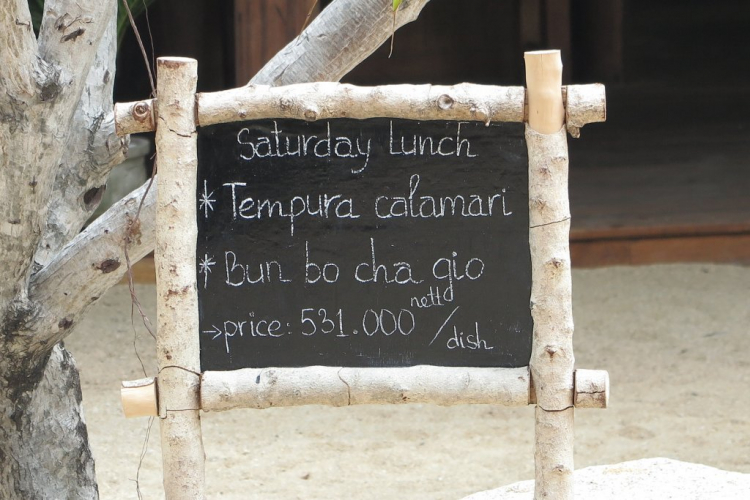 Saturday Lunch
* Tempura calamari
* Bun bo cha gio
→ price: 531.000 nett / dish